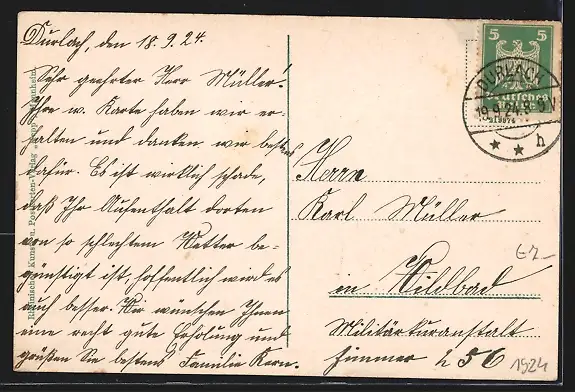 Durlach, den 18.9.24.
Sehr geehrter Herr Müller!
Ihre w. Karte haben wir er-
halten und danken wir bestens
dafür. Es ist wirklich schade,
daß Ihr Aufenthalt dorten
von so schlechtem Wetter be-
günstigt ist, hoffentlich wird es
auch besser. Wir wünschen Ihnen
eine recht gute Erholung und
grüßen Sie bestens Familie Kern.
Rheinische Kunst- u. Postkarten-Verlag
5 5
DURLACH
19.9.24
* * h
Herrn
Karl Müller
in Wildbad
Militärkuranstalt
Zimmer 256
1924